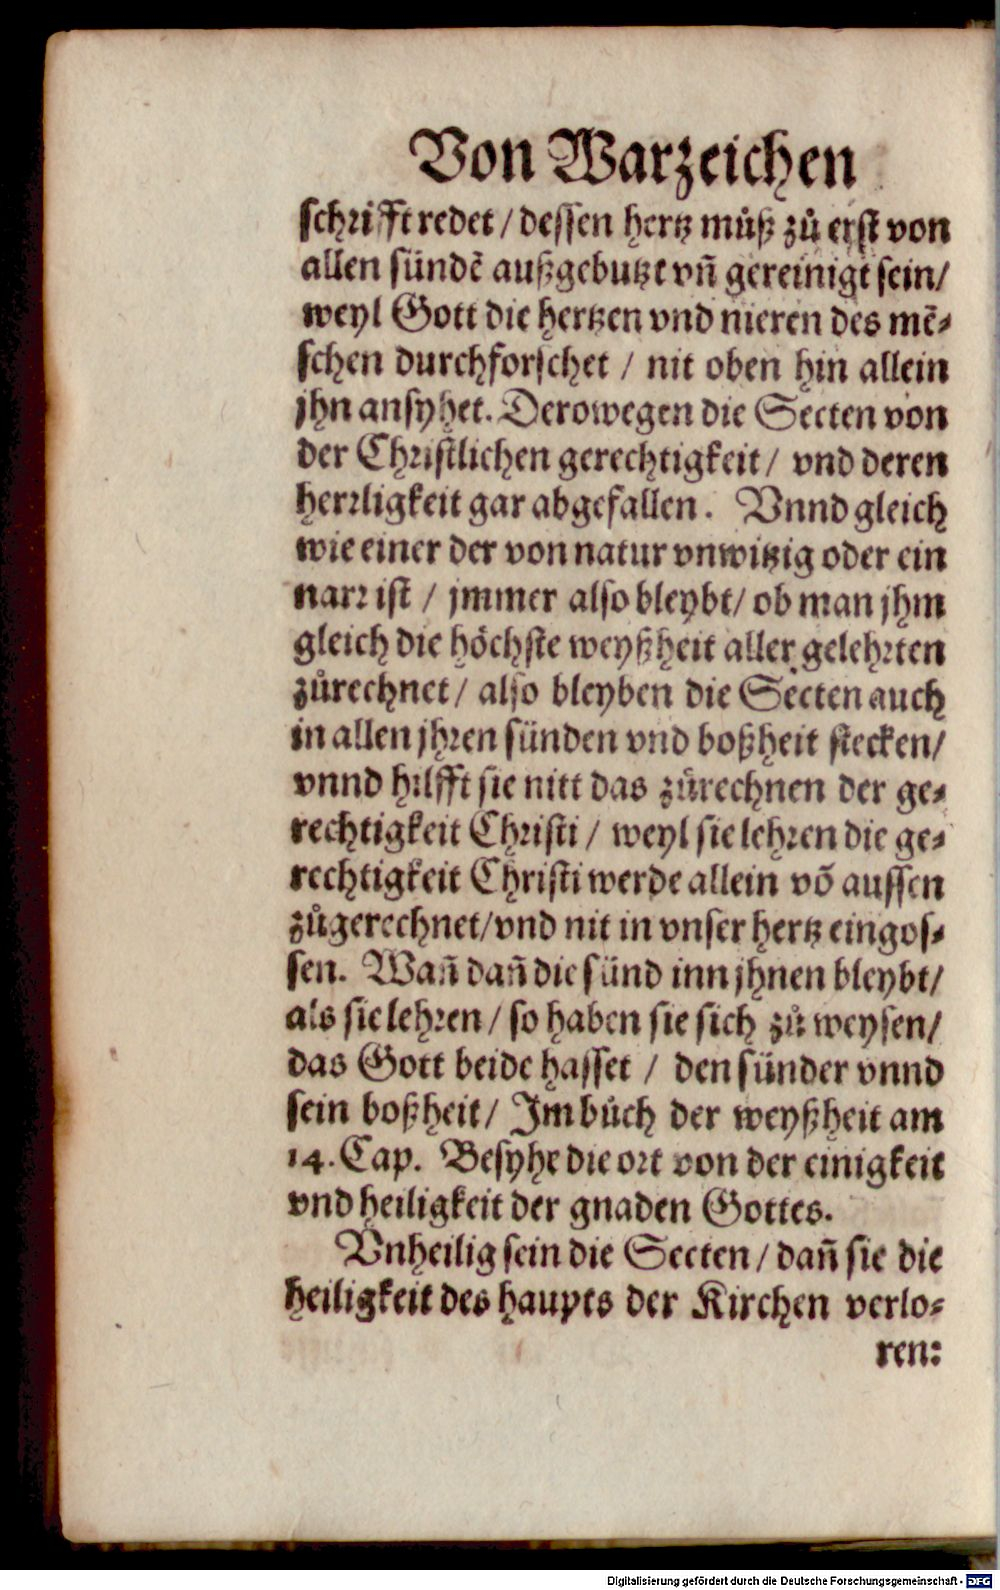 Von Warzeichen
schrifft redet / dessen hertz můß zů erst von
allen sündẽ außgebutzt vñ gereinigt sein/
weyl Gott die hertzen vnd nieren des mẽ-
schen durchforschet / nit oben hin allein
jhn ansyhet. Derowegen die Secten von
der Christlichen gerechtigkeit / vnd deren
herrligkeit gar abgefallen. Vnnd gleich
wie einer der von natur vnwitzig oder ein
narr ist / jmmer also bleybt/ ob man jhm
gleich die höchste weyßheit aller gelehrten
zůrechnet / also bleyben die Secten auch
in allen jhren sünden vnd boßheit stecken/
vnnd hilfft sie nitt das zůrechnen der ge-
rechtigkeit Christi / weyl sie lehren die ge-
rechtigkeit Christi werde allein võ aussen
zůgerechnet/vnd nit in vnser hertz eingos-
sen. Wañ dañ die sünd inn jhnen bleybt/
als sie lehren / so haben sie sich zů weysen/
das Gott beide hasset / den sünder vnnd
sein boßheit/ Im bůch der weyßheit am
14. Cap. Besyhe die ort von der einigkeit
vnd heiligkeit der gnaden Gottes.
Vnheilig sein die Secten / dañ sie die
heiligkeit des haupts der Kirchen verlo-
ren:
Digitalisierung gefördert durch die Deutsche Forschungsgemeinschaft - DFG